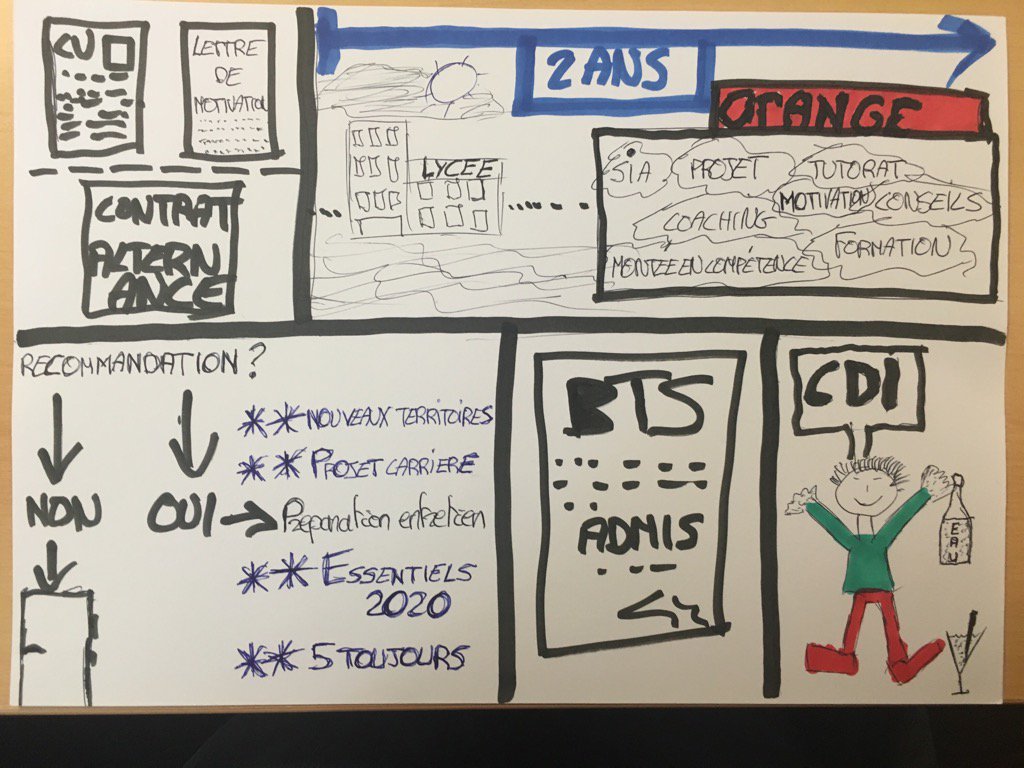 CV
LETTRE
DE
MOTIVATION
CONTRAT
ALTERN
ANCE
2 ANS
LYCEE
ORANGE
SIA PROJET TUTORAT
MOTIVATION CONSEILS
COACHING
FORMATION
MONTEE EN COMPÉTENCE
RECOMMANDATION ?
NON
OUI → Préparation entretien
** NOUVEAUX TERRITOIRES
** PROJET CARRIERE
** ESSENTIELS
2020
** 5 TOUJOURS
BTS
ADMIS
CDI
EAU